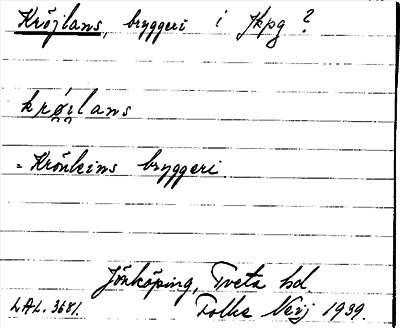 Kröjlans, bryggeri i Jkpg?
krǿi̯lans
= Krönleins bryggeri
Jönköping, Tveta hd.
LAL. 3681. Folke Nerj 1939.